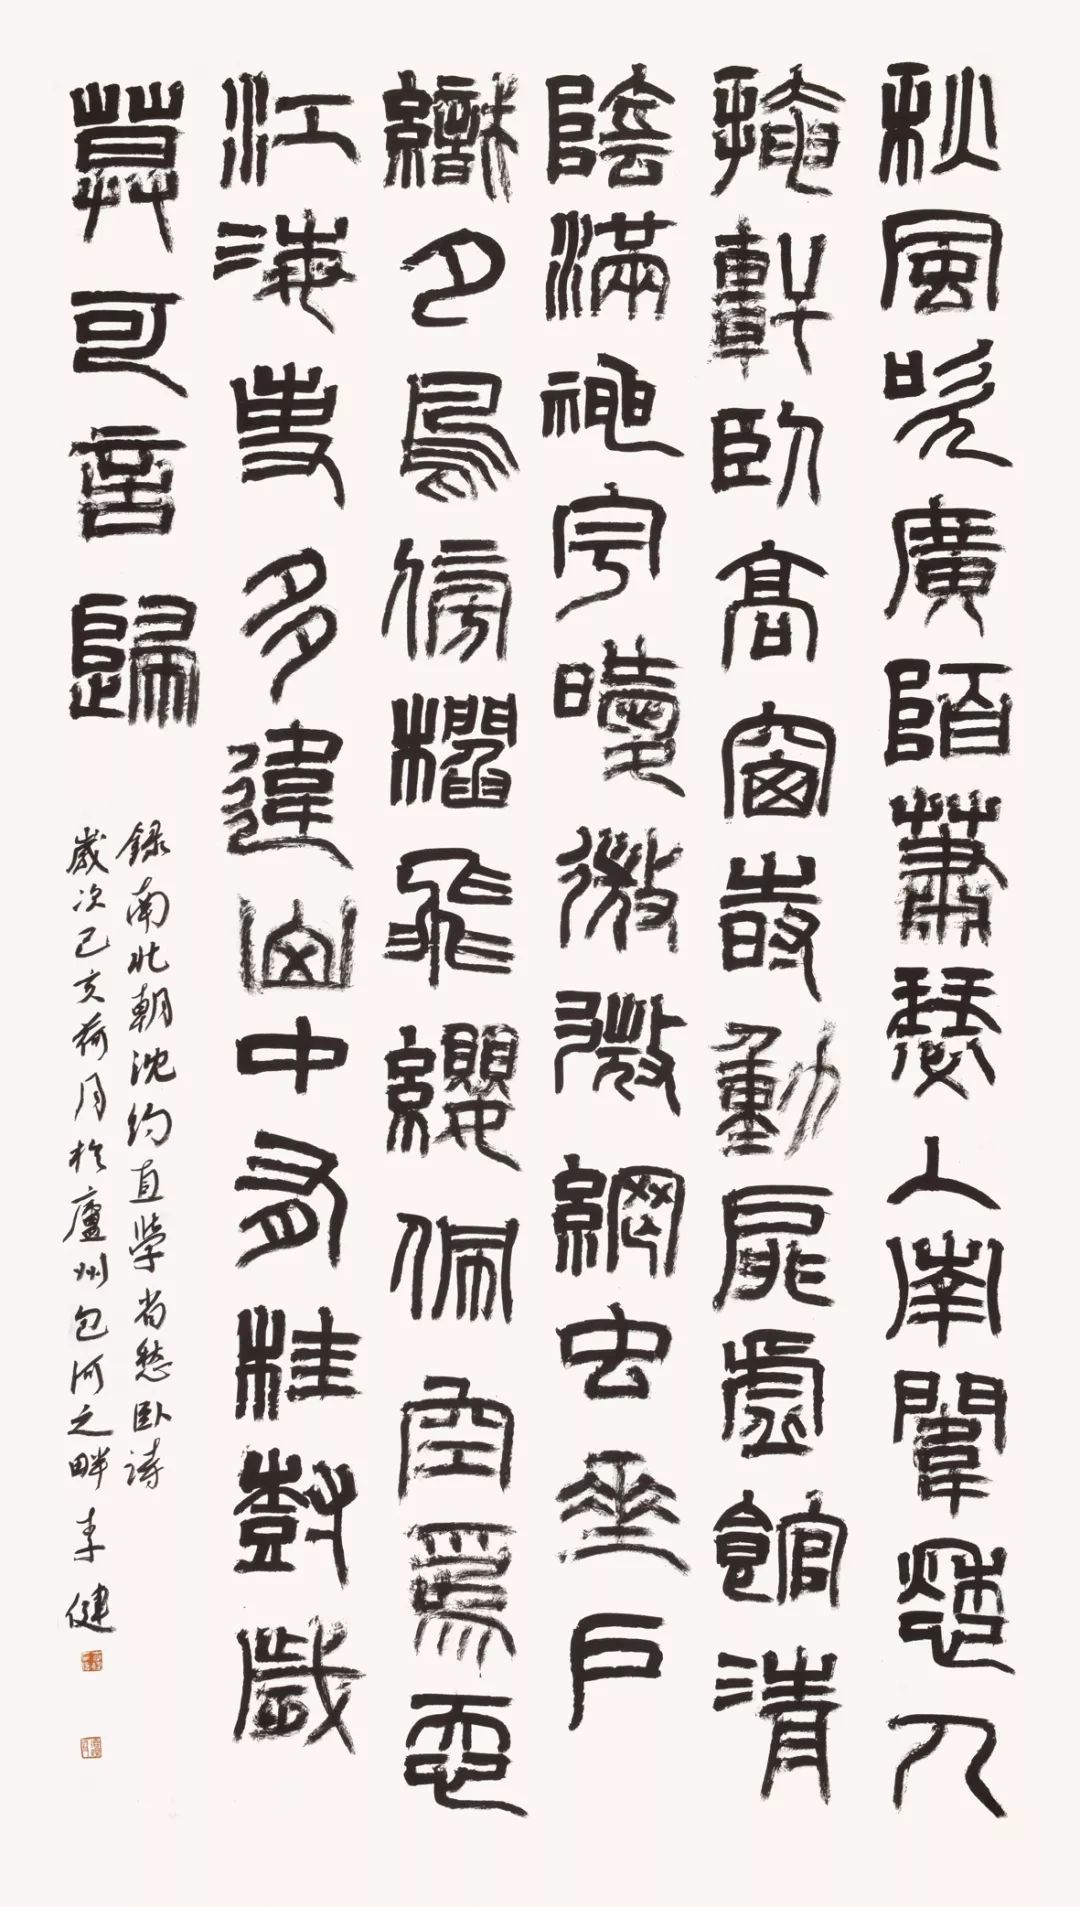 秋風吹廣陌蕭瑟入南闈愁人
掩軒臥高窗時動扉虛館清
陰滿神宇曖微微網虫垂戶
織夕鳥傍櫩飛纓佩空為忝
江海事多違山中有桂樹歲
莫可言歸
録南北朝沈約直學省愁卧詩
歲次己亥荷月於廬州包河之畔李健